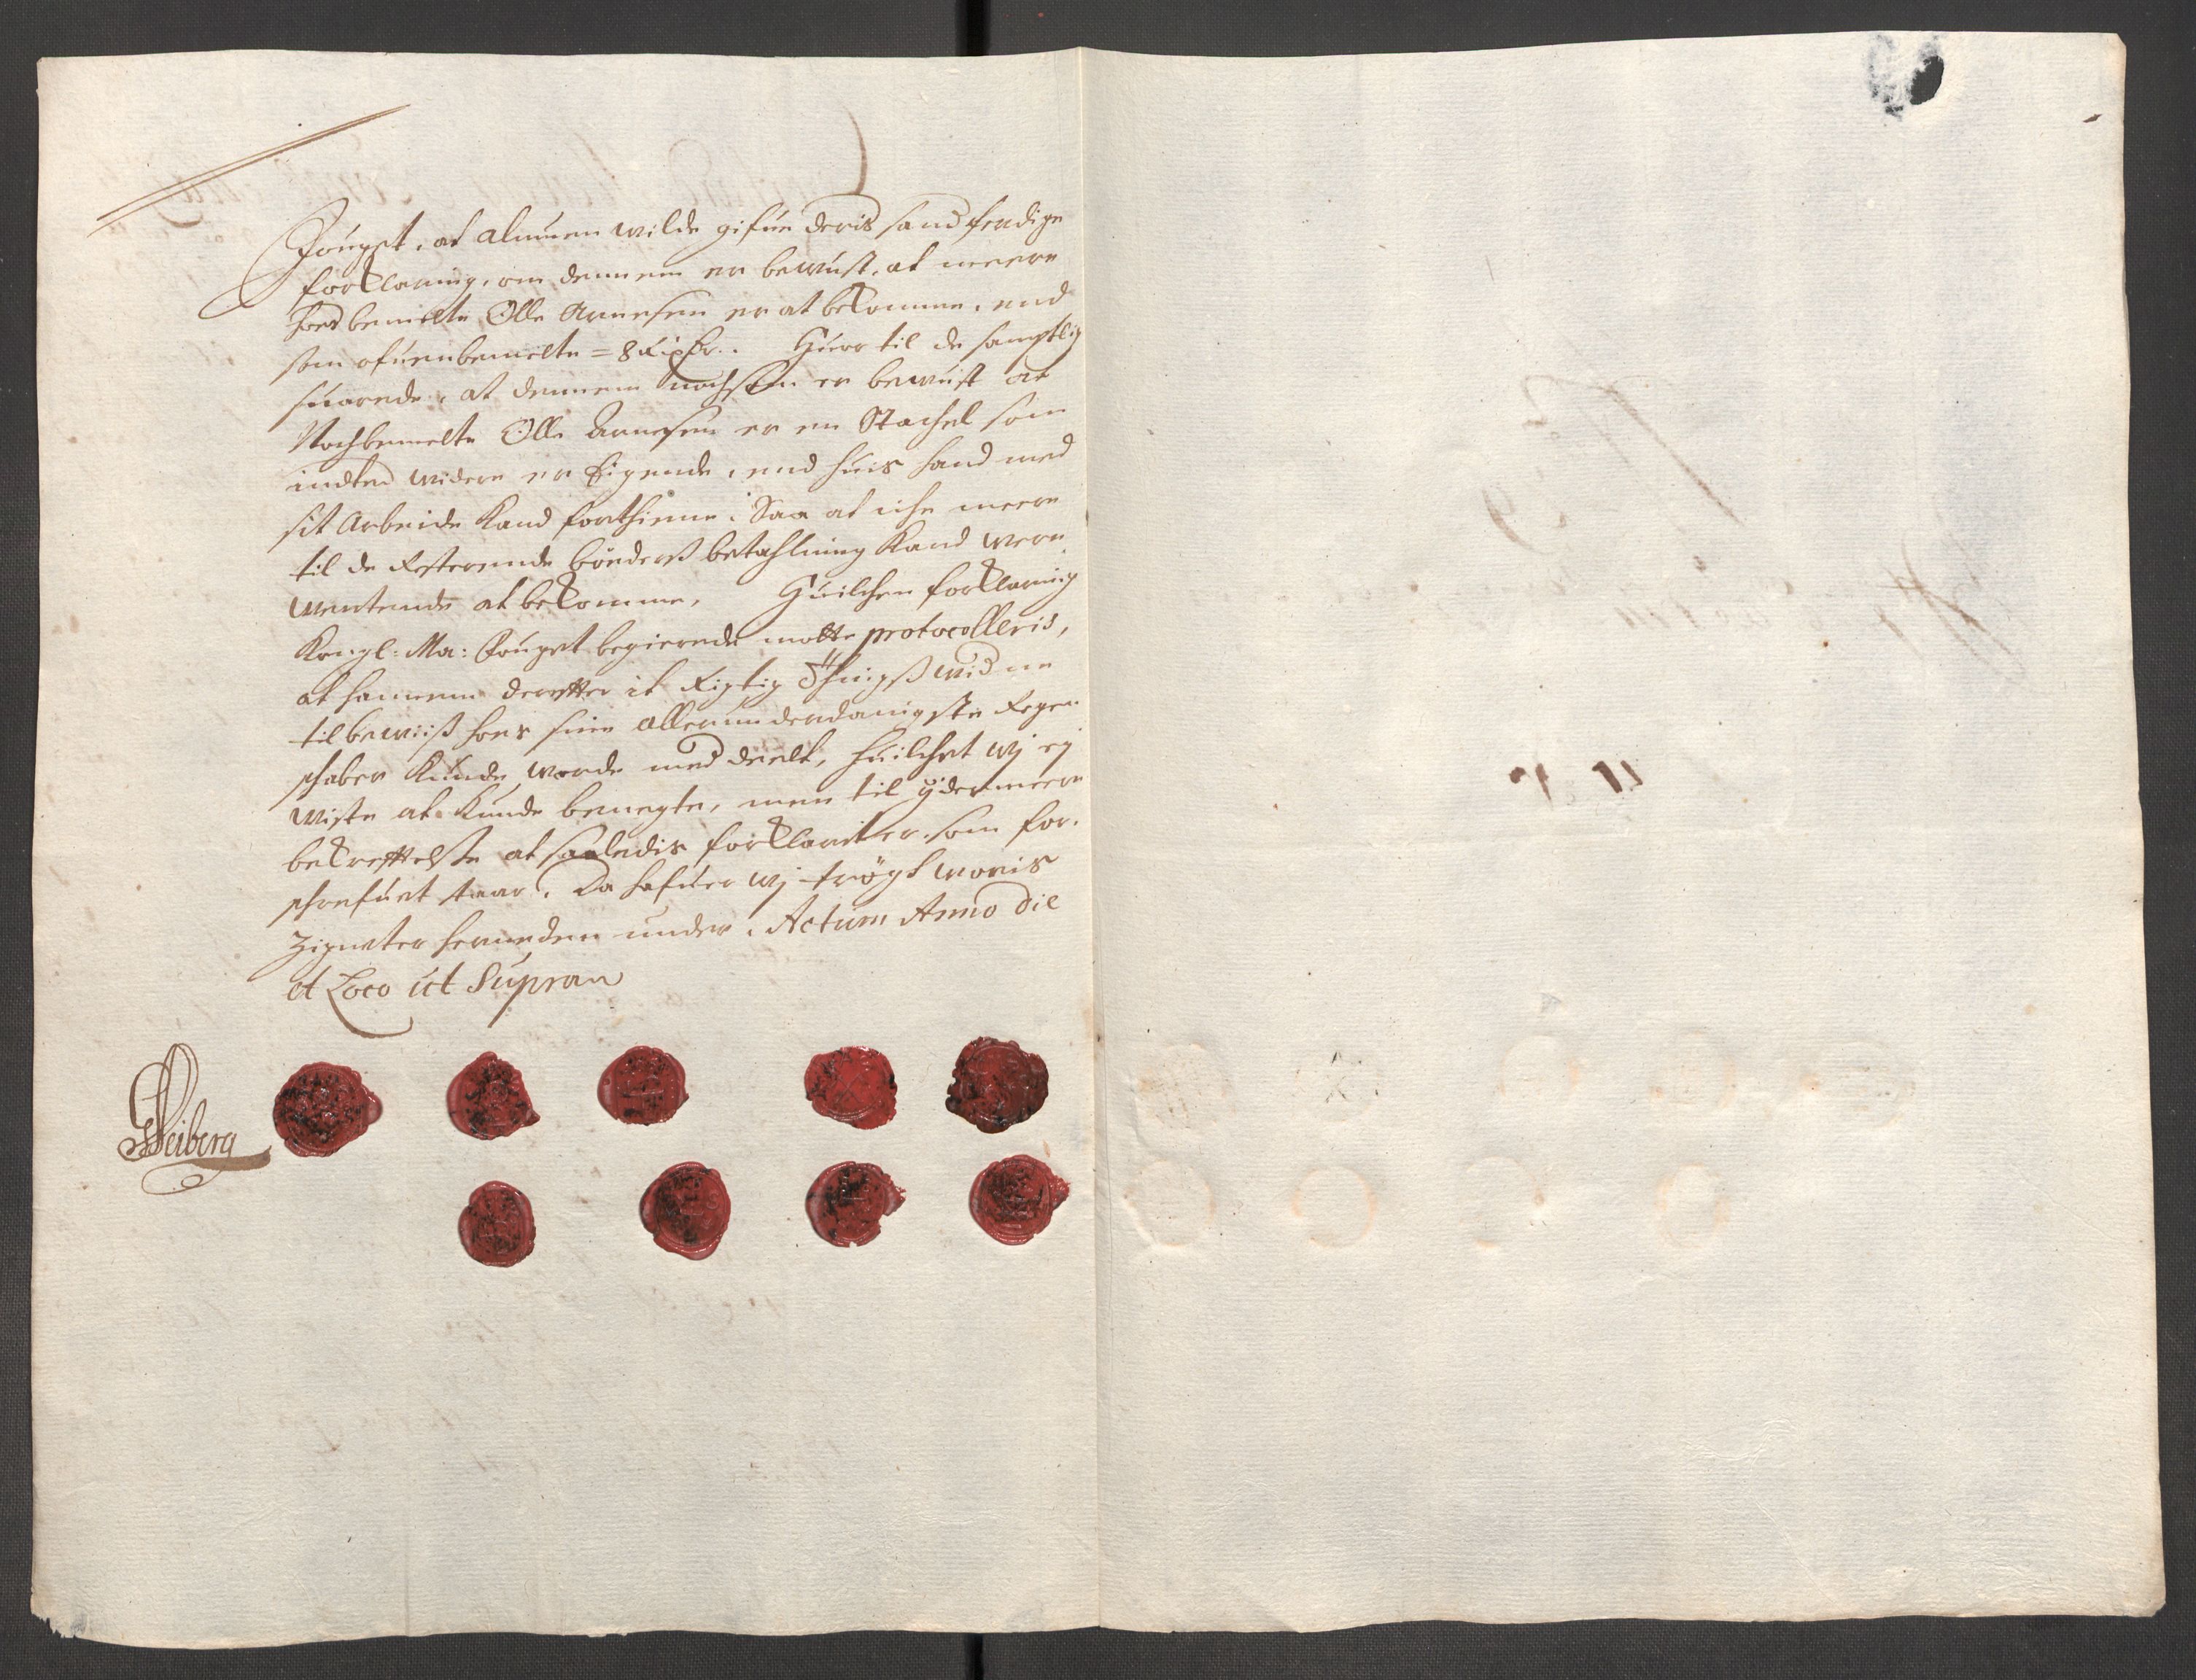 Fouget, at almuen wilde gifue deris sandferdige
forklaring, om dennem er bewust, at meere
hos bemelte Olle Arnesen er at bekomme, end
som ofuenbemelte = 8 Rixdr. Huor til de samptlig
suarede, at dennem nochsom er bewust at
Nochbemelte Olle Arnesen er en Stachel som
indted widere er Eigende, end huis hand med
sit Arbeide kand forthienne. Saa at iche meere
til de resterende bönders betahlning kand were
wentende at bekomme, Huilchen forklaring
Kongl: Ma: Fouget begierede motte protocolleris,
at hannem derefter it rigtig Thingswidne
til bewiiß hos sine allerunderdanigste Regen-
schaber kunde worde meddeelt, huilchet wj ej
wiste at kunde benegte, men til ÿdermeere
bekreftelse at saaledis forklaret er som for-
schrefuet staar, Da hafuer wj trögt woris
Zigneter herneden under. Actum Anno die
et Loco ut Supran
Seiberg